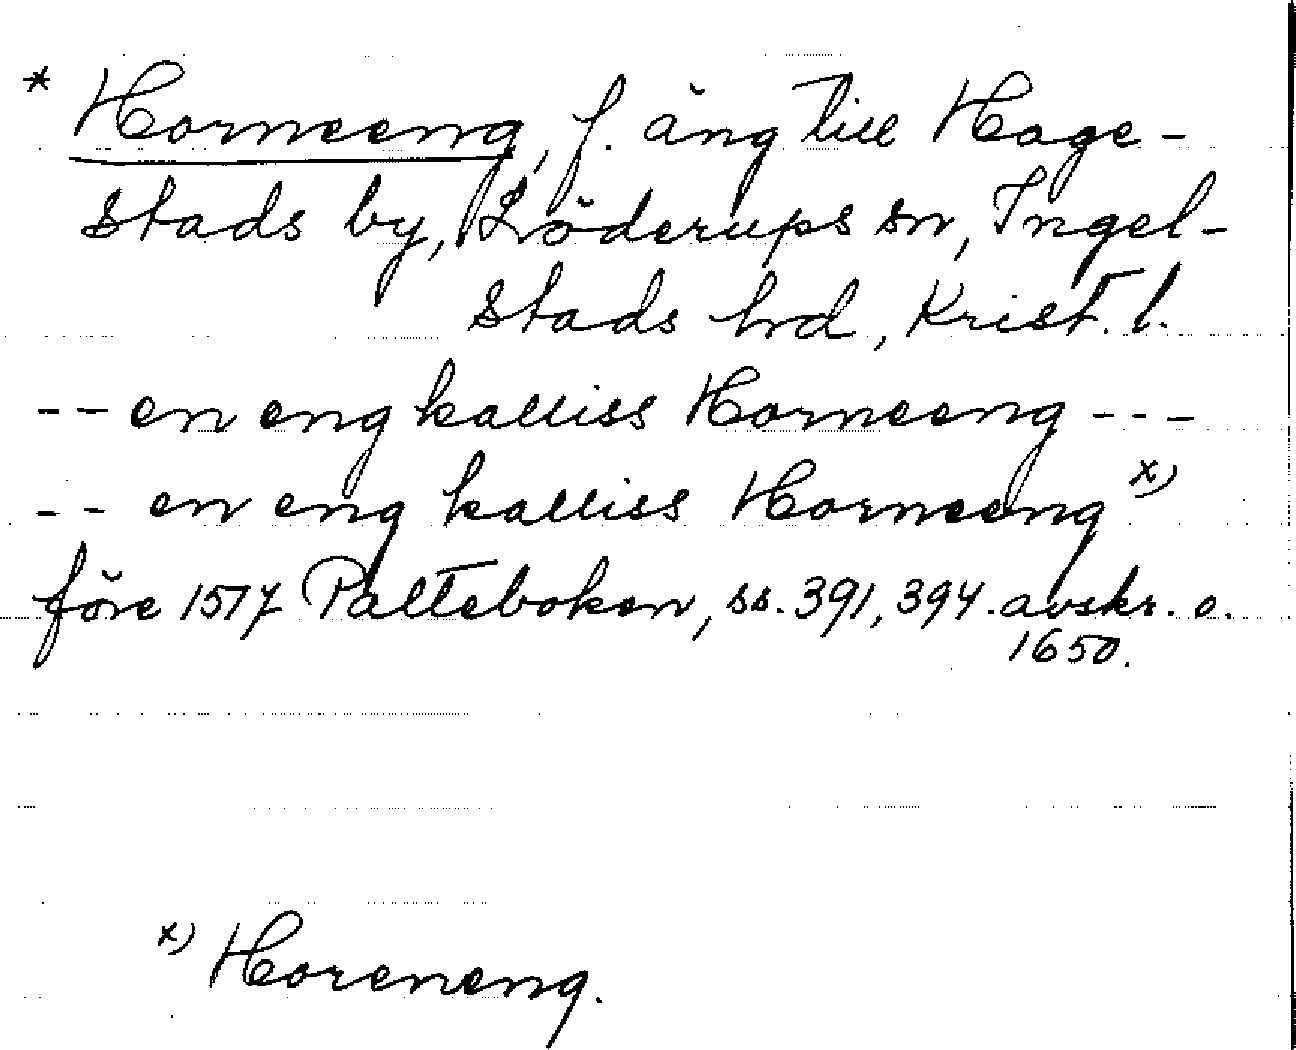 * Horneeng, f. äng till Hage-
stads by, Löderups sn, Ingel-
stads hrd, Krist. l.
-- en eng kalliss Horneeng ---
-- en eng kalliss Horneeng x)
före 1517 Palteboken, ss. 391, 394. avskr. o.
1650.
x) Horeneng.